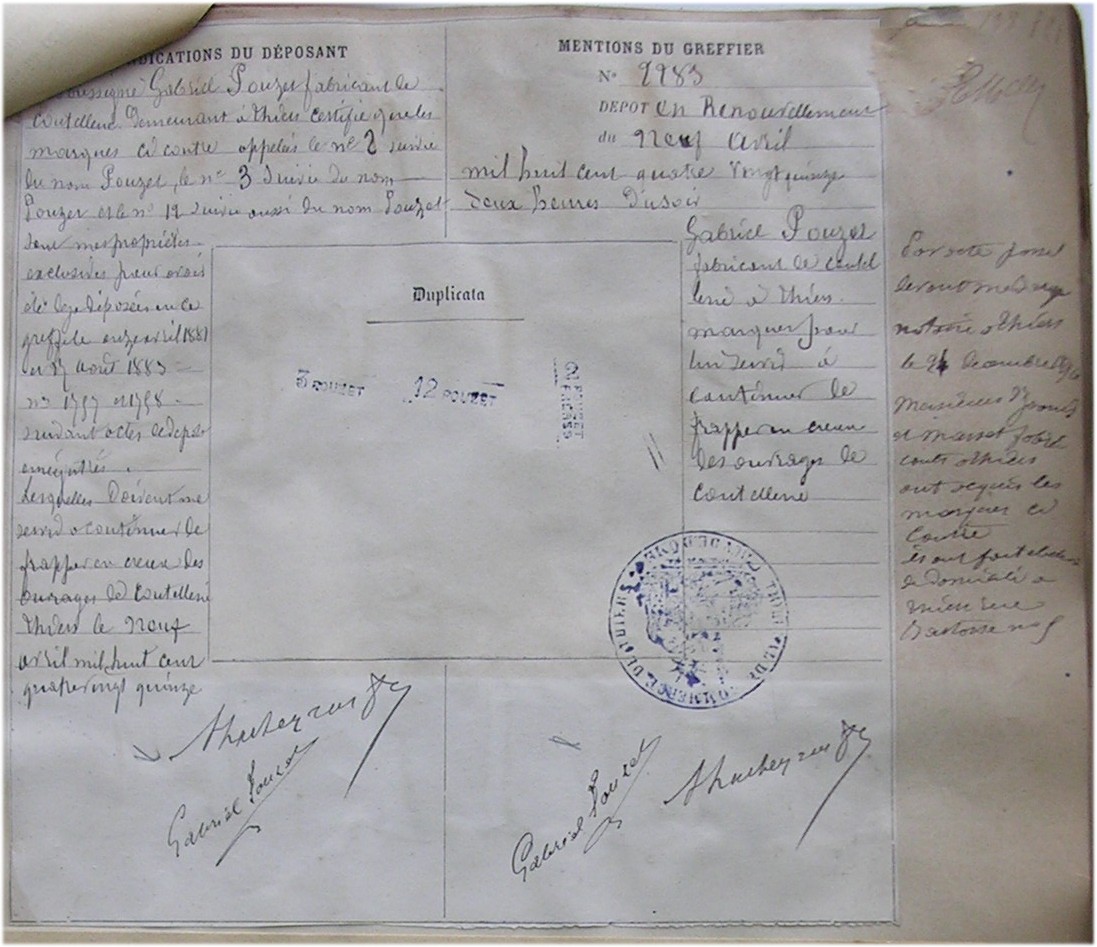 INDICATIONS DU DÉPOSANT
soussigné Gabriel Pouzet fabricant de
coutellerie Demeurant à thiers certifie que les
marques ci contre appelés le nº 8 suivie
du nom Pouzet, le nº 3 Suivie du nom
Pouzet et le nº 12 suivie aussi du nom Pouzet
sont mes propriétés
exclusives pour avoir
été deja déposées en ce
greffe le onze avril 1881
et 17 Août 1883
nos 1757 et 1758
suivant actes de depot
enregistrés.
Lesquelles doivent me
servir a continuer de
frapper en creux des
ouvrages de Coutellerie
thiers le Neuf
avril mil huit cent
quatre vingt quinze
Gabriel Pouzet
MENTIONS DU GREFFIER
Nº 2283
DEPOT en Renouvellement
du Neuf avril
mil huit cent quatre vingt quinze
deux heures Du soir
Gabriel Pouzet
fabricant de coutel
lerie à thiers.
marques pour
lui servir à
continuer de
frapper en creux
des ouvrages de
Coutellerie
Duplicata
3 POUZET
12 POUZET
Gabriel Pouzet
Par acte passé
devant
notaire a thiers
le Decembre
Messieurs
et
a thiers
ont acquis les
marques ci
contre
ils ont fait
de domicile a
thiers rue